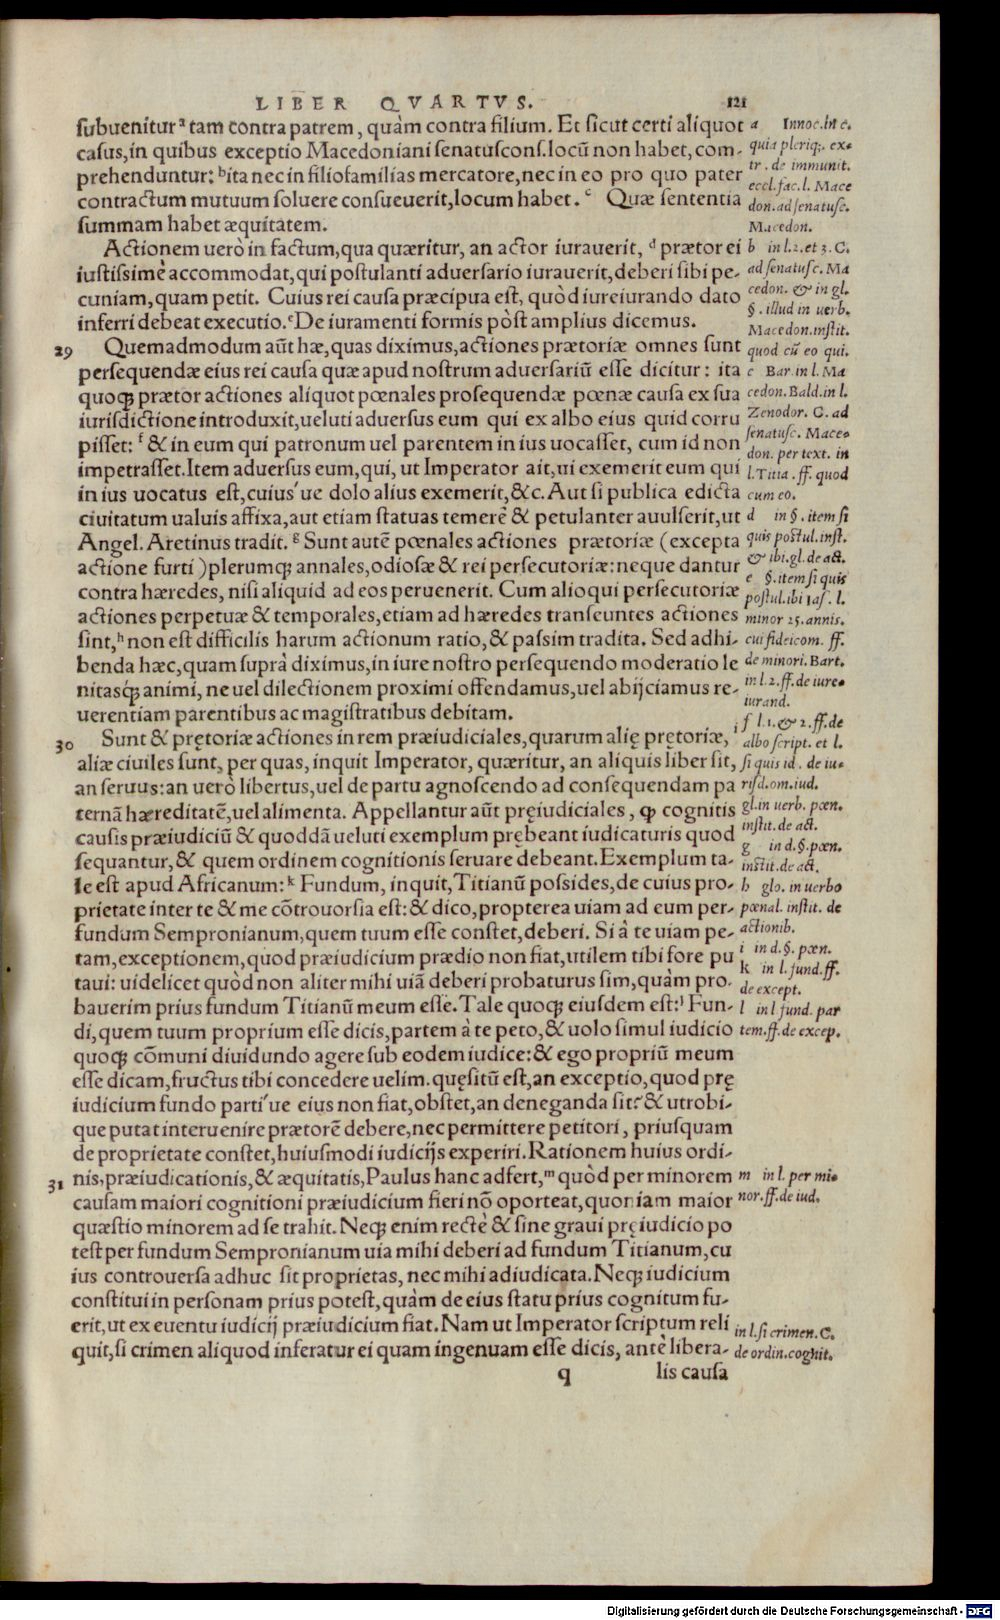 LIBER QVARTVS. 121
subuenitur ᵃ tam contra patrem, quàm contra filium. Et sicut certi aliquot
casus, in quibus exceptio Macedoniani senatuscons. locũ non habet, com-
prehenduntur: ᵇ ita nec in filiofamilias mercatore, nec in eo pro quo pater
contractum mutuum soluere consueuerit, locum habet. ᶜ Quæ sententia
summam habet æquitatem.
Actionem uerò in factum, qua quæritur, an actor iurauerit, ᵈ prætor ei
iustissimè accommodat, qui postulanti aduersario iurauerit, deberi sibi pe-
cuniam, quam petit. Cuius rei causa præcipua est, quòd iureiurando dato
inferri debeat executio. ᵉ De iuramenti formis pòst amplius dicemus.
29 Quemadmodum aũt hæ, quas diximus, actiones prætoriæ omnes sunt
persequendæ eius rei causa quæ apud nostrum aduersariũ esse dicitur: ita
quoq; prætor actiones aliquot pœnales prosequendæ pœnæ causa ex sua
iurisdictione introduxit, ueluti aduersus eum qui ex albo eius quid corru
pisset: ᶠ & in eum qui patronum uel parentem in ius uocasset, cum id non
impetrasset. Item aduersus eum, qui, ut Imperator ait, ui exemerit eum qui
in ius uocatus est, cuius'ue dolo alius exemerit, &c. Aut si publica edicta
ciuitatum ualuis affixa, aut etiam statuas temerè & petulanter auulserit, ut
Angel. Aretinus tradit. ᵍ Sunt autẽ pœnales actiones prætoriæ (excepta
actione furti) plerumq; annales, odiosæ & rei persecutoriæ: neque dantur
contra hæredes, nisi aliquid ad eos peruenerit. Cum alioqui persecutoriæ
actiones perpetuæ & temporales, etiam ad hæredes transeuntes actiones
sint, ʰ non est difficilis harum actionum ratio, & passim tradita. Sed adhi-
benda hæc, quam suprà diximus, in iure nostro persequendo moderatio le
nitasq́; animi, ne uel dilectionem proximi offendamus, uel abijciamus re-
uerentiam parentibus ac magistratibus debitam.
30 Sunt & prętoriæ actiones in rem præiudiciales, quarum alię prętoriæ, ⁱ
aliæ ciuiles sunt, per quas, inquit Imperator, quæritur, an aliquis liber sit,
an seruus: an uerò libertus, uel de partu agnoscendo ad consequendam pa
ternã hæreditatẽ, uel alimenta. Appellantur aũt pręiudiciales, ꝙ cognitis
causis præiudiciũ & quoddã ueluti exemplum prębeant iudicaturis quod
sequantur, & quem ordinem cognitionis seruare debeant. Exemplum ta-
le est apud Africanum: ᵏ Fundum, inquit, Titianũ possides, de cuius pro-
prietate inter te & me cõtrouorsia est: & dico, propterea uiam ad eum per-
fundum Sempronianum, quem tuum esse constet, deberi. Si à te uiam pe-
tam, exceptionem, quod præiudicium prædio non fiat, utilem tibi fore pu
taui: uidelicet quòd non aliter mihi uiã deberi probaturus sim, quàm pro
bauerim prius fundum Titianũ meum esse. Tale quoq; eiusdem est: ˡ Fun-
di, quem tuum proprium esse dicis, partem à te peto, & uolo simul iudicio
quoq; cõmuni diuidundo agere sub eodem iudice: & ego propriũ meum
esse dicam, fructus tibi concedere uelim. quęsitũ est, an exceptio, quod prę
iudicium fundo parti'ue eius non fiat, obstet, an deneganda sit? & utrobi-
que putat interuenire prætorẽ debere, nec permittere petitori, priusquam
de proprietate constet, huiusmodi iudicijs experiri. Rationem huius ordi-
31 nis, præiudicationis, & æquitatis, Paulus hanc adfert, ᵐ quòd per minorem
causam maiori cognitioni præiudicium fieri nõ oporteat, quoniam maior
quæstio minorem ad se trahit. Neq; enim rectè & sine graui pręiudicio po
test per fundum Sempronianum uia mihi deberi ad fundum Titianum, cu
ius controuersa adhuc sit proprietas, nec mihi adiudicata. Neq; iudicium
constitui in personam prius potest, quàm de eius statu prius cognitum fu-
erit, ut ex euentu iudicij præiudicium fiat. Nam ut Imperator scriptum reli
quit, si crimen aliquod inferatur ei quam ingenuam esse dicis, antè libera-
q lis causa
a Innoc. in c.
quia pleriq;. ex-
tr. de immunit.
eccl. fac. l. Mace
don. ad senatusc.
Macedon.
b in l. 2. et 3. C.
ad senatusc. Ma
cedon. & in gl.
§. illud in uerb.
Macedon. instit.
quod cũ eo qui.
c Bar. in l. Ma
cedon. Bald. in l.
Zenodor. C. ad
senatusc. Mace-
don. per text. in
l. Titia. ff. quod
cum eo.
d in §. item si
quis postul. inst.
& ibi. gl. de act.
e §. item si quis
postul. ibi Ias. l.
minor 25. annis.
cui fideicom. ff.
de minori. Bart.
in l. 2. ff. de iure-
iurand.
f l. 1. & 2. ff. de
albo script. et l.
si quis id. de iu-
risd. om. iud.
gl. in uerb. pœn.
instit. de act.
g in d. §. pœn.
instit. de act.
h glo. in uerbo
pœnal. instit. de
actionib.
i in d. §. pœn.
k in l. fund. ff.
de except.
l in l fund. par
tem. ff. de excep.
m in l. per mi-
nor. ff. de iud.
in l. si crimen. C.
de ordin. cognit.
Digitalisierung gefördert durch die Deutsche Forschungsgemeinschaft - DFG